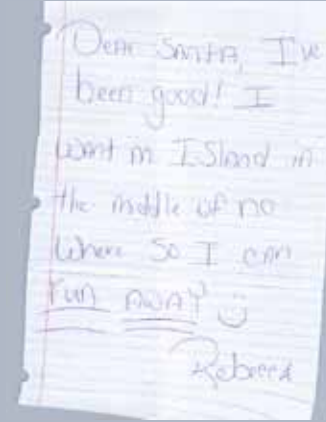 Dear Santa, I've
been good! I
want m ISland in
the middle of no
where So I can
run AWAY
Rebecca